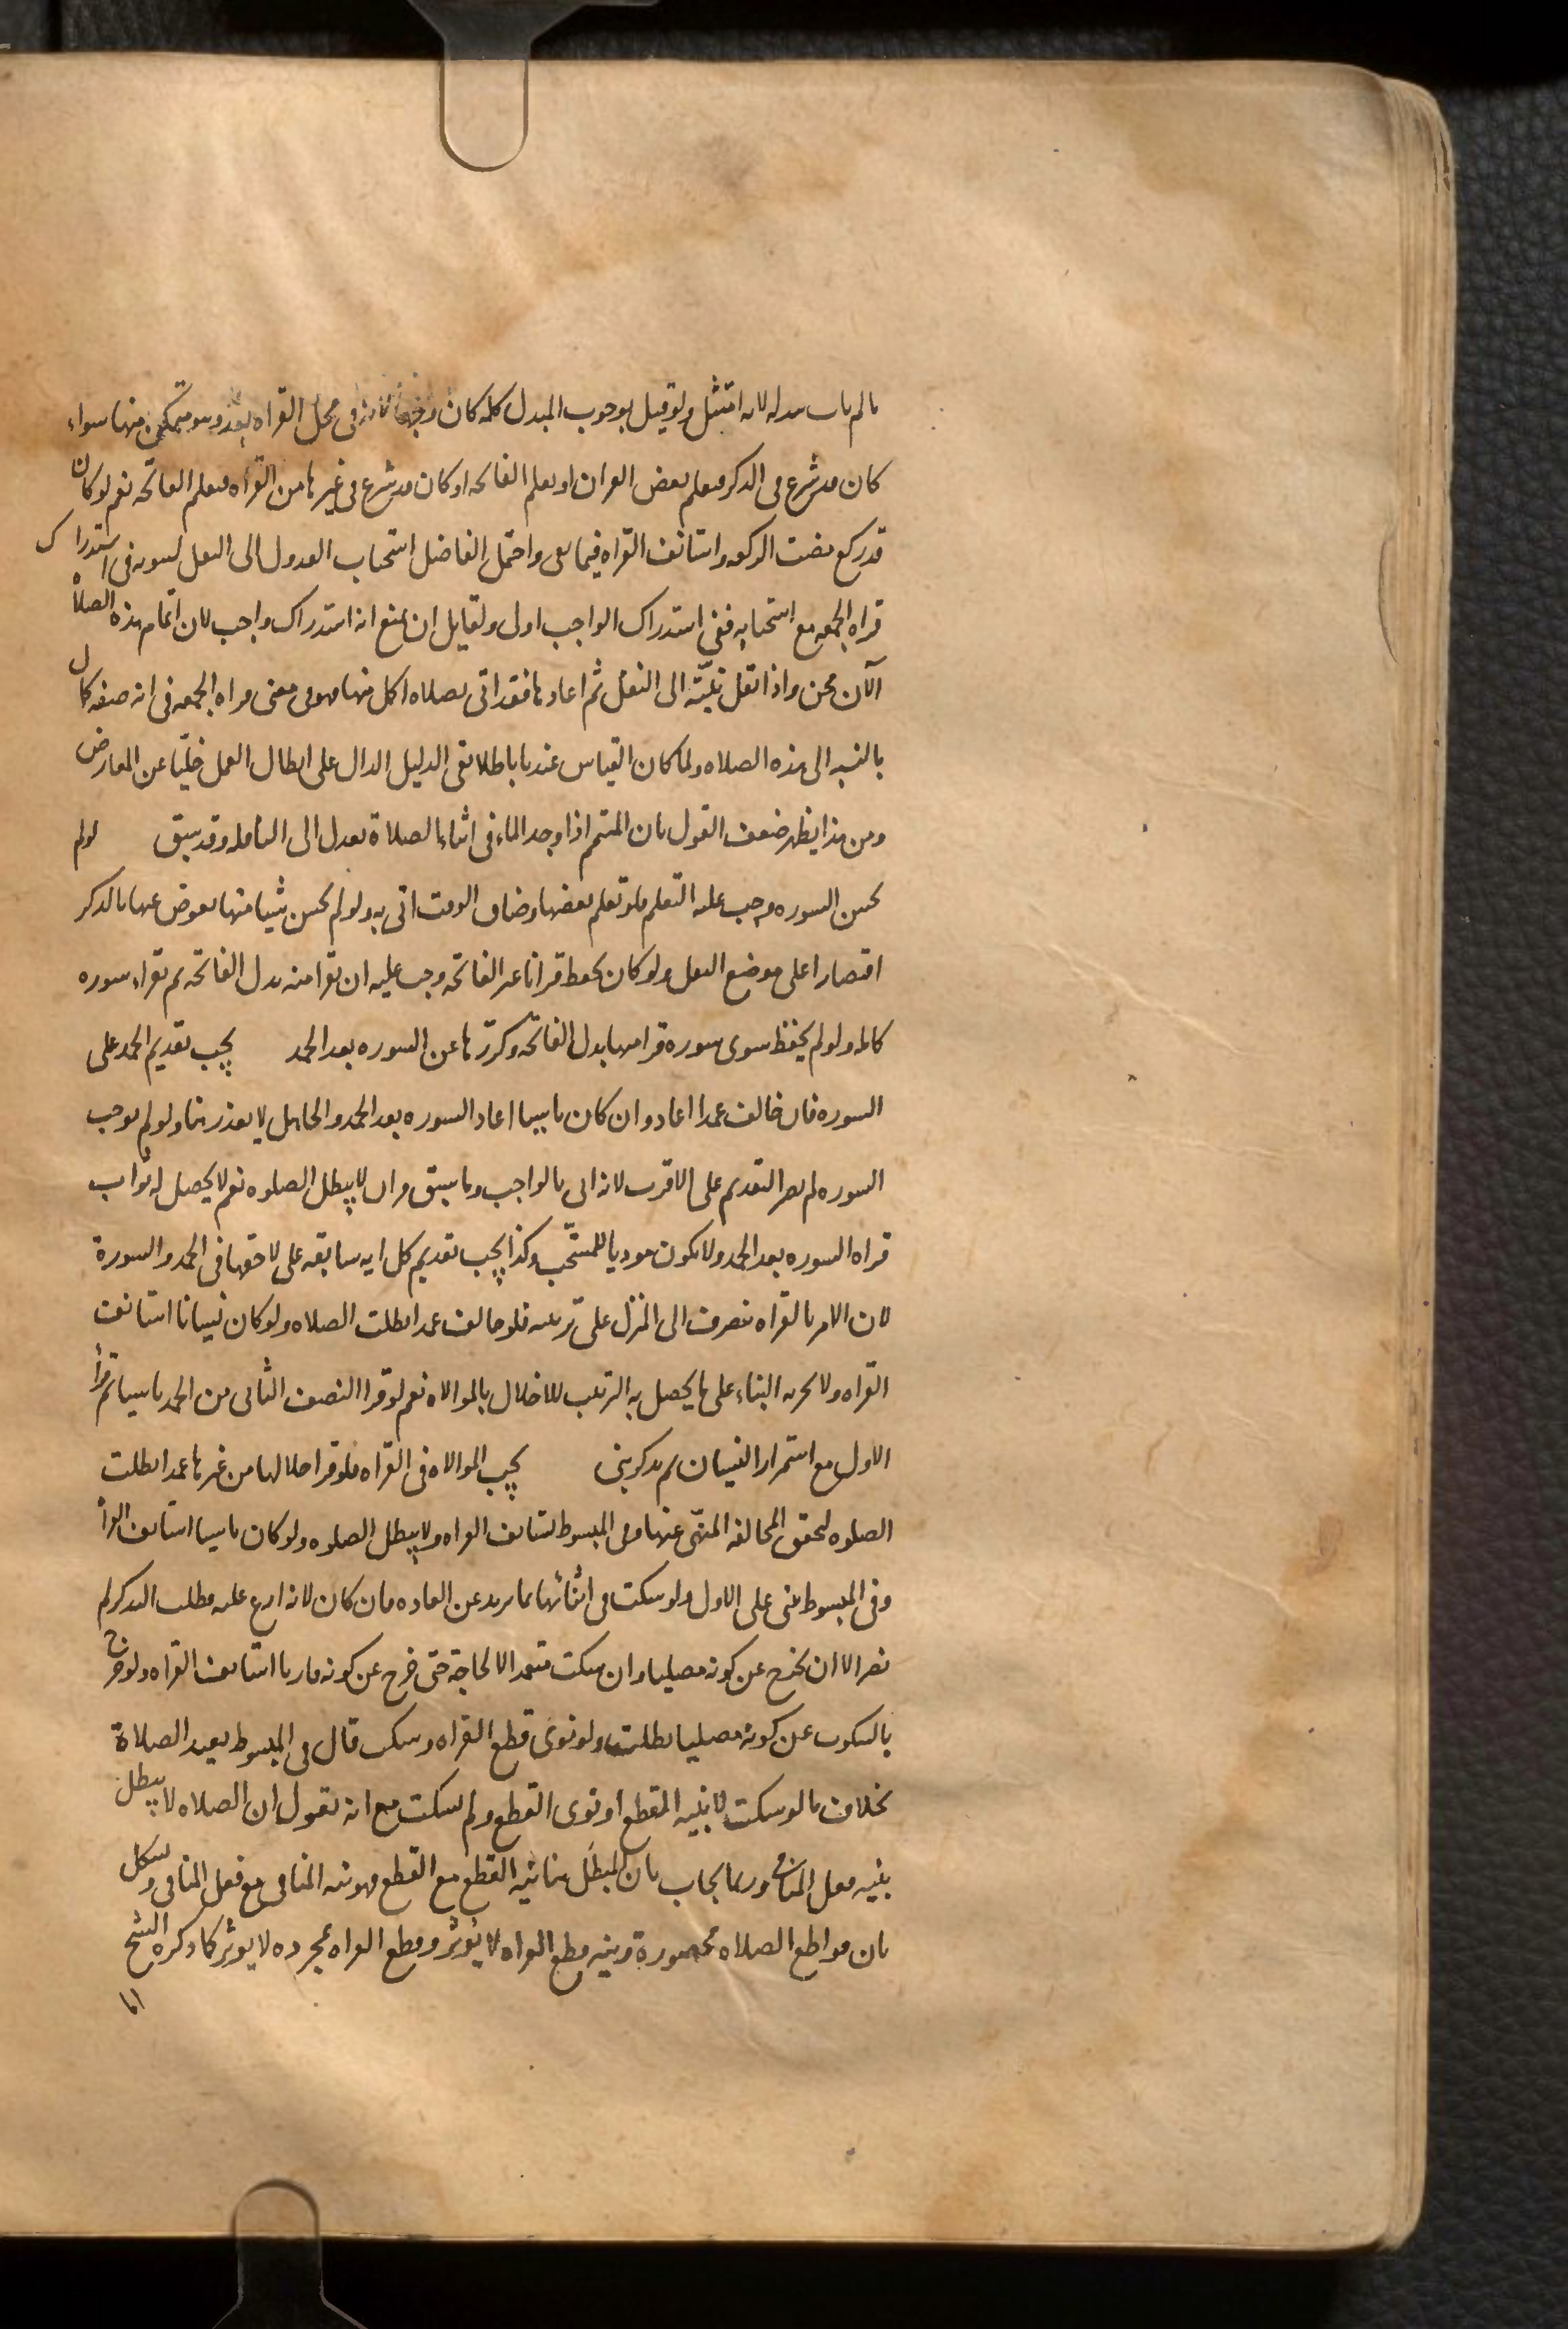 ما لم يات ببدله لانه امتثل ولو قيل بوجوب المبدل كله كان وجها لانه في محل القراه بعد وهو متمكن منها سواء
كان قد شرع في الذكر فتعلم بعض القران او تعلم الفاتحه او كان قد شرع في غيرها من القراه فتعلم الفاتحه نعم لو كان
قد ركع مضت الركعه واستانف القراه فيما بقى واحتمل الفاضل استحباب العدول الى النفل لسوبه في استدراك
قراه الجمعه مع استحبابه ففي استدراك الواجب اولى ولقايل ان يمنع انه استدراك واجب لان اتمام هذه الصلاة
الآن مجز واذا نقل نيّته الى النفل ثم اعادها فقد اتى بصلاه اكمل منها فهو في معنى قراه الجمعه في انه صفه كمال
بالنسبه الى هذه الصلاه ولما كان القياس عندنا باطلا بقي الدليل الدال على ابطال العمل خليّا عن المعارض
ومن هذا يظهر ضعف القول بان المتيمم اذا وجد الماء في اثناء الصلاة يعدل الى النافله وقد سبق لو لم
يحسن السوره وجب عليه التعلم فلو تعلم بعضها وضاق الوقت اتى به ولو لم يحسن شيا منها يعوض عنها بالذكر
اقتصارا على موضع النقل ولو كان يحفظ قرانا غير الفاتحه وجب عليه ان يقرا منه بدل الفاتحه ثم يقراء سوره
كامله ولو لم يحفظ سوى سوره قرا منها بدل الفاتحه وكررّها عن السوره بعد الحمد يجب تقديم الحمد على
السوره فان خالف عمدا اعاد وان كان ناسيا اعاد السوره بعد الحمد والجاهل لا يعذر هنا ولو لم نوجب
السوره لم يضر التقديم على الاقرب لانه اتى بالواجب وما سبق قران لا يبطل الصلوه نعم لا يحصل له ثواب
قراه السوره بعد الحمد ولا يكون موديا للمستحّب وكذا يجب تقديم كل ايه سابقه على لاحقها في الحمد والسورة
لان الامر بالقراه ينصرف الى المنزل على ترتيبه فلو خالف عمدا بطلت الصلاه ولو كان نسيانا استانف
القراه ولا يجزيه البناء على ما يحصل به الترتيب للاخلال بالموالاه نعم لو قرا النصف الثاني من الحمد ناسيا ثم قرأ
الاول مع استمرار النسيان ثم يذكر بنى يجب الموالاه في القراه فلو قرا خلالها من غيرها عمدا بطلت
الصلوه لتحقق المخالفه المنهّى عنها وفي المبسوط يستانف القراه ولا يبطل الصلوه ولو كان ناسيا استانف القراة
وفي المبسوط يبنى على الاول ولو سكت في اثنائها بما يزيد عن العاده فان كان لانه ارتج عليه فطلب التذكر لم
يضر الا ان يخرج عن كونه مصليا وان سكت متعمدا لا لحاجة حتى خرج عن كونه قاريا استانف القراه ولو خرج
بالسكوت عن كونه مصليا بطلت ولو نوى قطع القراه وسكت قال في المبسوط يعيد الصلاة
بخلاف ما لو سكت لا بنيه القطع او نوى القطع ولم يسكت مع انه يقول ان الصلاه لا يبطل
بنيه فعل المنافي وربما يجاب بان المبطل هنا نيه القطع مع القطع فهو نيه المنافي مع فعل المنافي ويشكل
بان قواطع الصلاه محصورة ونيه قطع القراه لا يؤثر وقطع القراه بمجرده لا يوثر كما ذكره الشيخ
اما